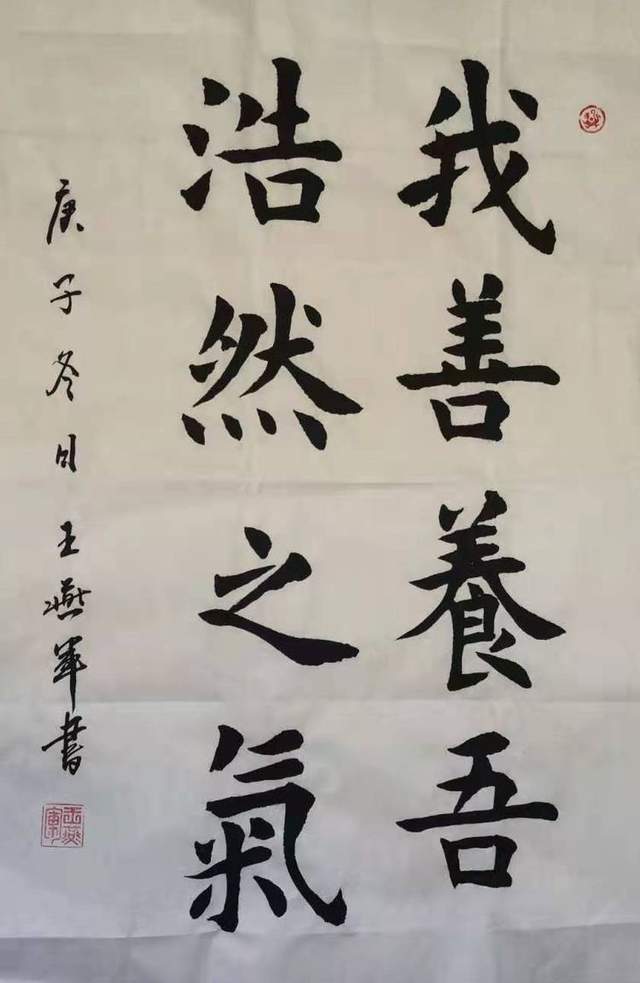 我善養吾
浩然之氣
庚子冬月王燕軍書